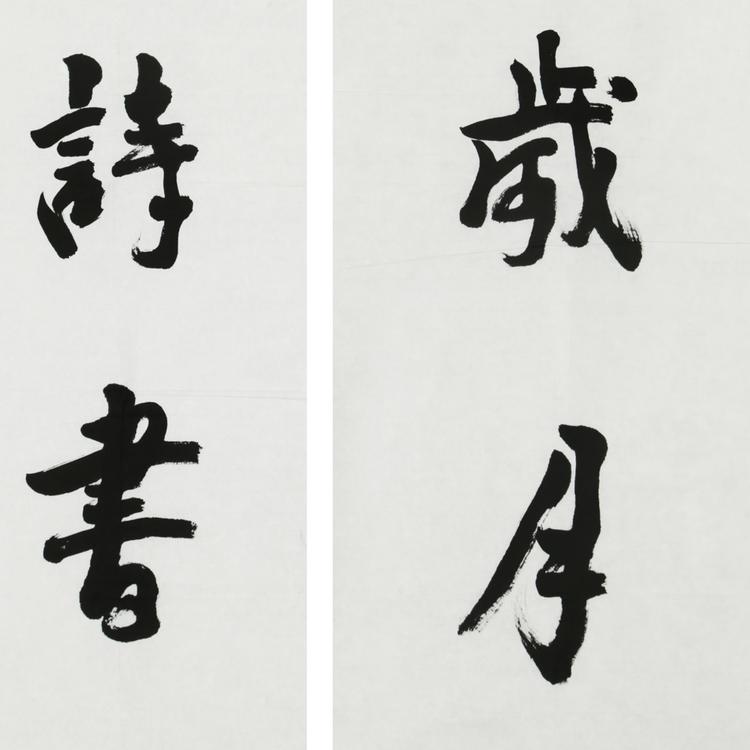 歲月
詩書